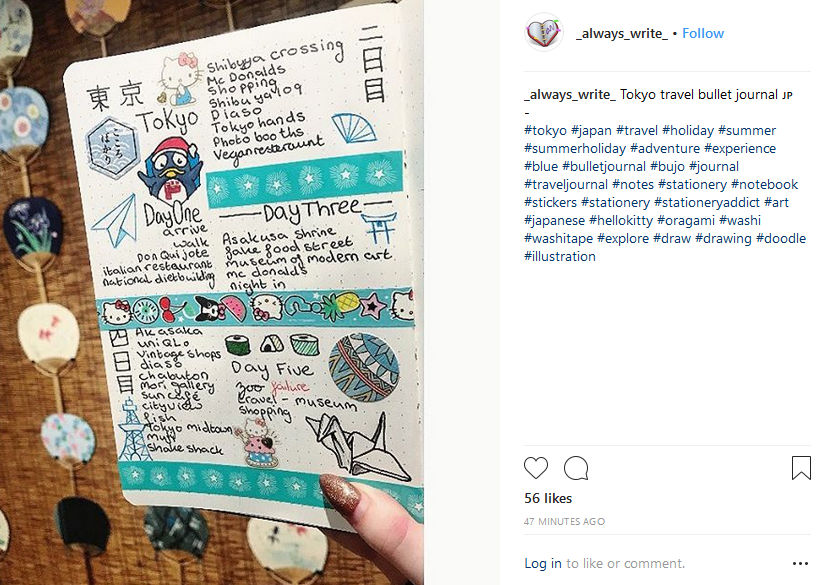 東京
Tokyo
こころ
ばかり
Day One
arrive
walk
Don Quijote
italian restaurant
national dietbuilding
二日目
Shibuya crossing
Mc Donalds
Shopping
Shibuya 109
Diaso
Tokyo hands
Photo booths
Vegan resteraunt
Day Three
Asakusa Shrine
fake food street
museum of modern art
mc donalds
night in
四日目
Akasaka
uniQLo
Vintage Shops
diaso
chabuton
mori gallery
sun cafe
city view
fish
tokyo midtown
muji
shake shack
Day Five
zoo failure
travel - museum
shopping
_always_write_ • Follow
_always_write_ Tokyo travel bullet journal JP
-
#tokyo #japan #travel #holiday #summer
#summerholiday #adventure #experience
#blue #bulletjournal #bujo #journal
#traveljournal #notes #stationery #notebook
#stickers #stationery #stationeryaddict #art
#japanese #hellokitty #oragami #washi
#washitape #explore #draw #drawing #doodle
#illustration
56 likes
47 MINUTES AGO
Log in to like or comment.